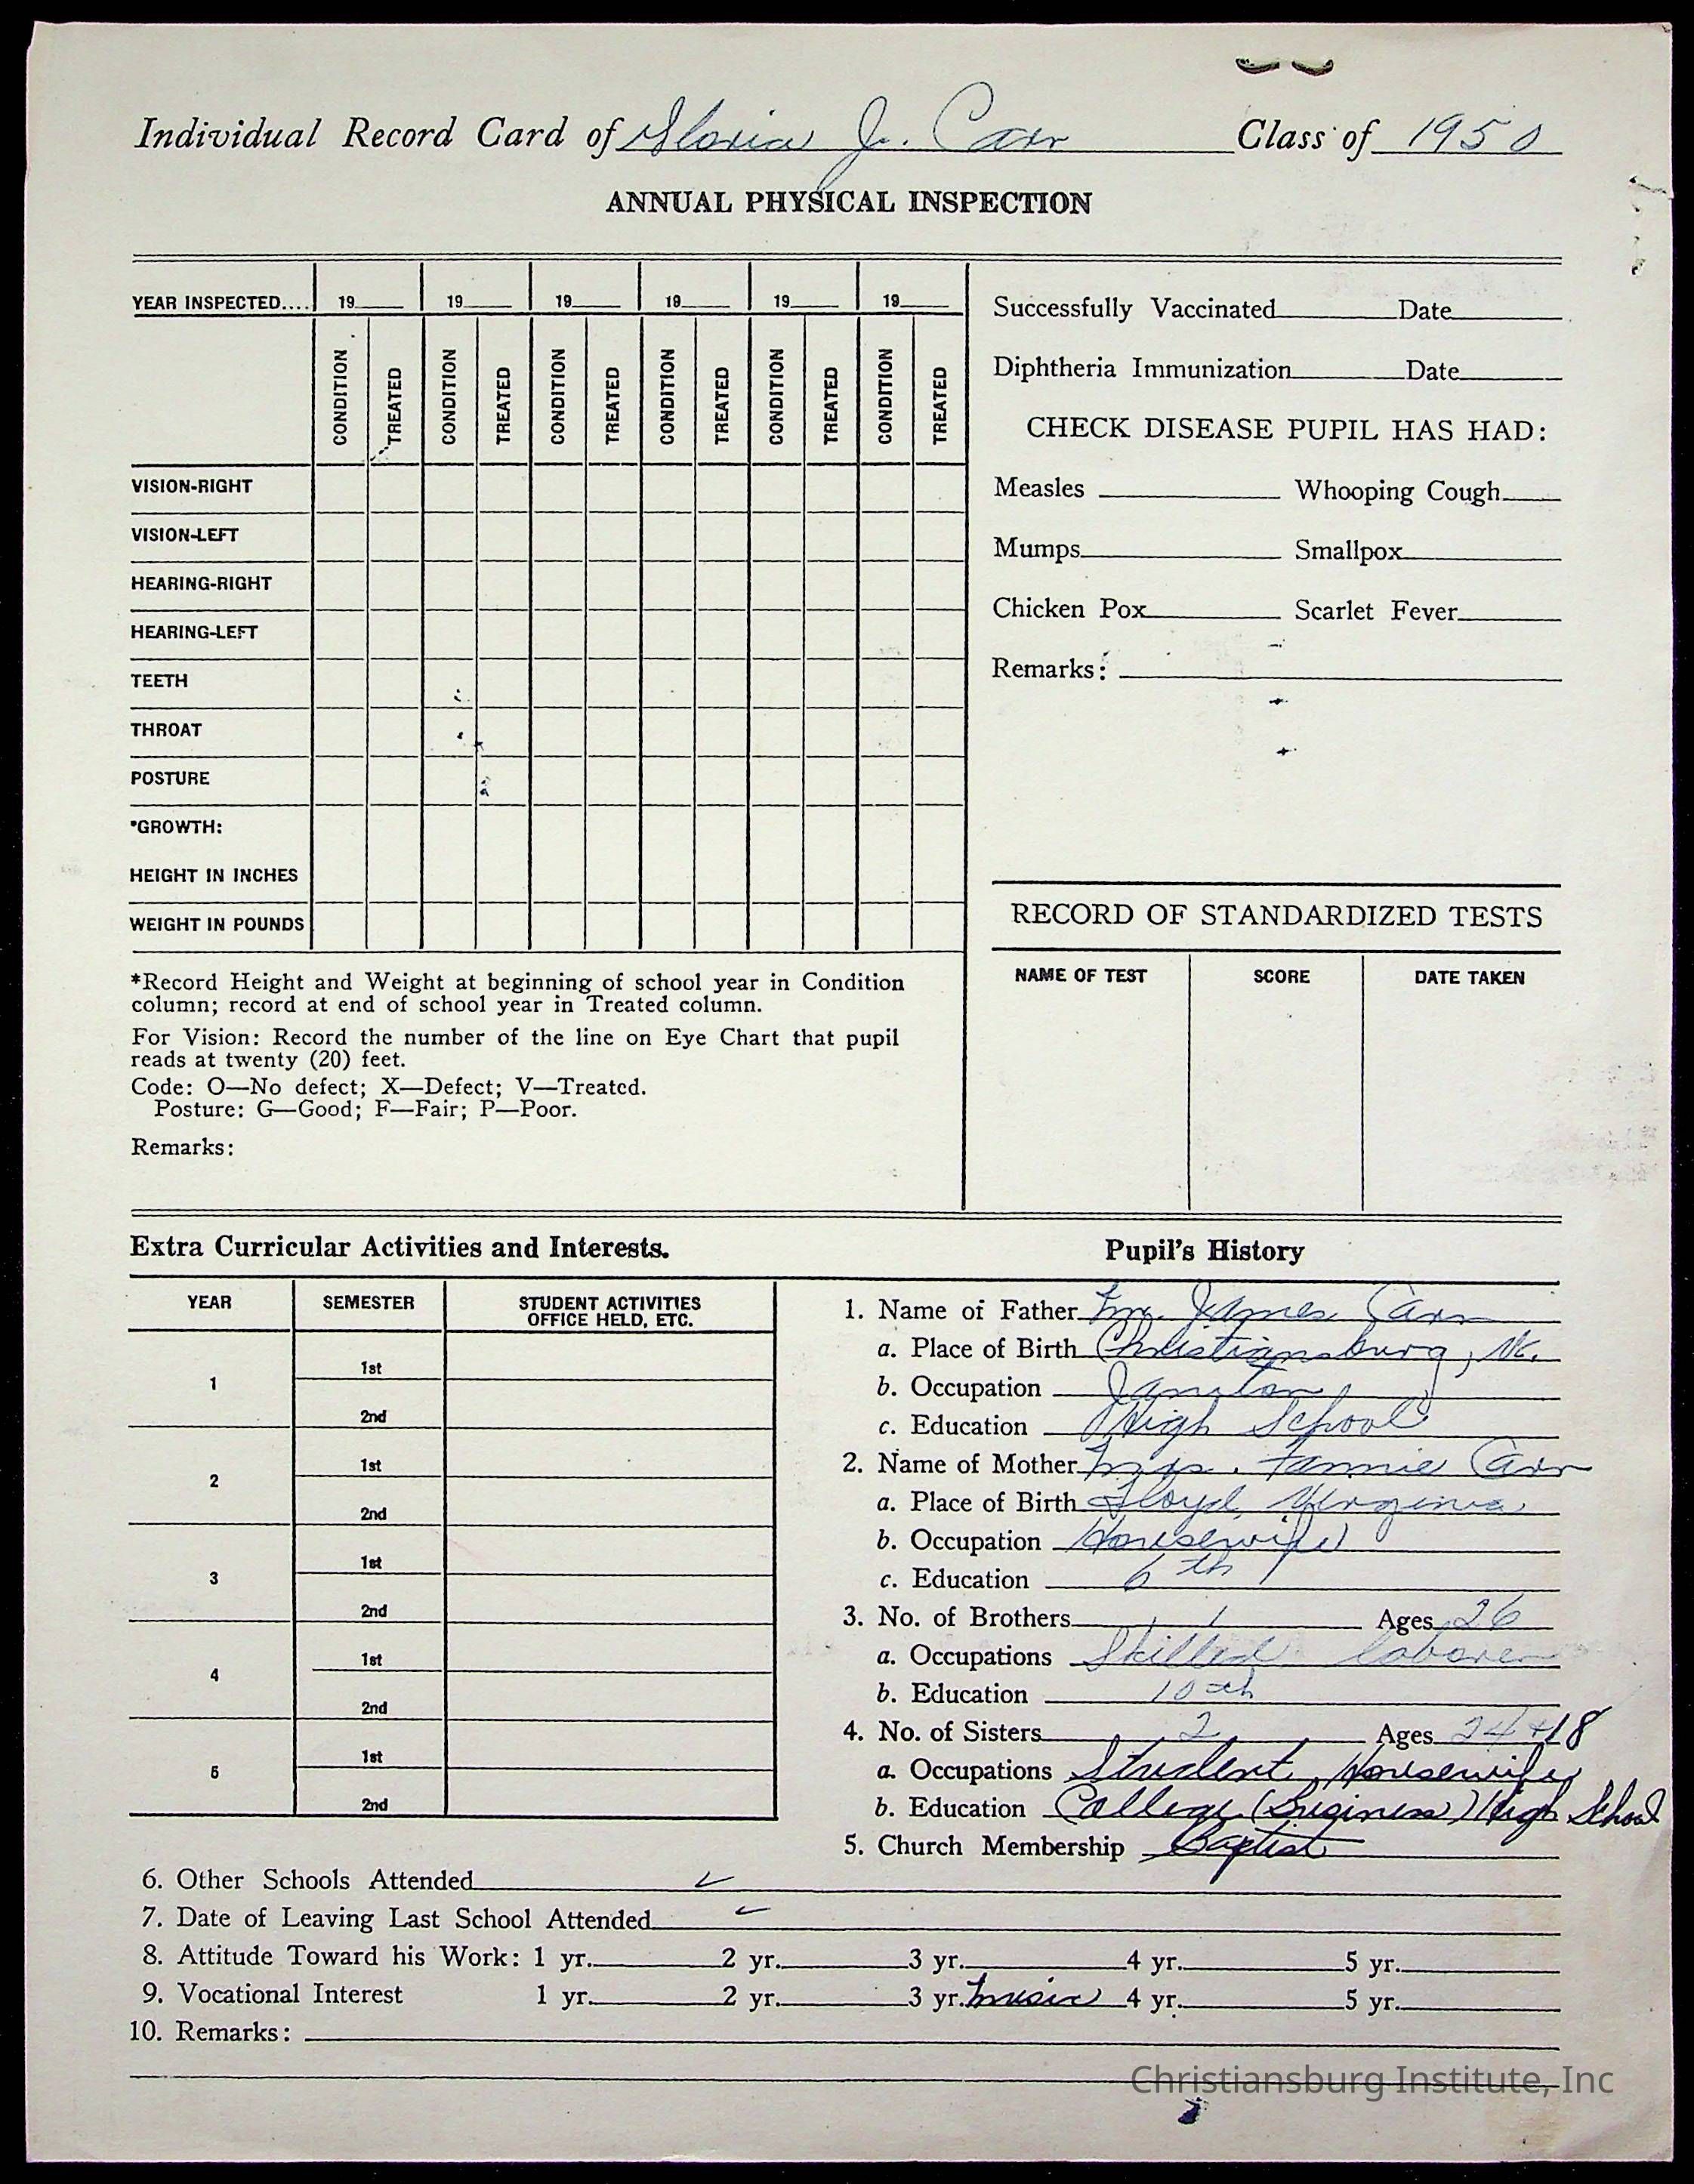 Individual Record Card of Gloria J. Carr Class of 1950
ANNUAL PHYSICAL INSPECTION
YEAR INSPECTED.... 19 19 19 19 19 19
CONDITION TREATED CONDITION TREATED CONDITION TREATED CONDITION TREATED CONDITION TREATED CONDITION TREATED
VISION-RIGHT
VISION-LEFT
HEARING-RIGHT
HEARING-LEFT
TEETH
THROAT
POSTURE
*GROWTH:
HEIGHT IN INCHES
WEIGHT IN POUNDS
*Record Height and Weight at beginning of school year in Condition
column; record at end of school year in Treated column.
For Vision: Record the number of the line on Eye Chart that pupil
reads at twenty (20) feet.
Code: O—No defect; X—Defect; V—Treated.
Posture: G—Good; F—Fair; P—Poor.
Remarks:
Successfully Vaccinated Date
Diphtheria Immunization Date
CHECK DISEASE PUPIL HAS HAD:
Measles Whooping Cough
Mumps Smallpox
Chicken Pox Scarlet Fever
Remarks:
RECORD OF STANDARDIZED TESTS
NAME OF TEST SCORE DATE TAKEN
Extra Curricular Activities and Interests.
YEAR SEMESTER STUDENT ACTIVITIES
OFFICE HELD, ETC.
1 1st
2nd
2 1st
2nd
3 1st
2nd
4 1st
2nd
5 1st
2nd
Pupil's History
1. Name of Father Mr. James Carr
a. Place of Birth Christiansburg, Va.
b. Occupation Janitor
c. Education High School
2. Name of Mother Mrs. Fannie Carr
a. Place of Birth Floyd, Virginia
b. Occupation Housewife
c. Education 6th
3. No. of Brothers 1 Ages 26
a. Occupations Skilled laborer
b. Education 10th
4. No. of Sisters 2 Ages 24 + 18
a. Occupations Student, Housewife
b. Education College (Business) High School
5. Church Membership Baptist
6. Other Schools Attended ✓
7. Date of Leaving Last School Attended ✓
8. Attitude Toward his Work: 1 yr. 2 yr. 3 yr. 4 yr. 5 yr.
9. Vocational Interest 1 yr. 2 yr. 3 yr. Music 4 yr. 5 yr.
10. Remarks:
Christiansburg Institute, Inc